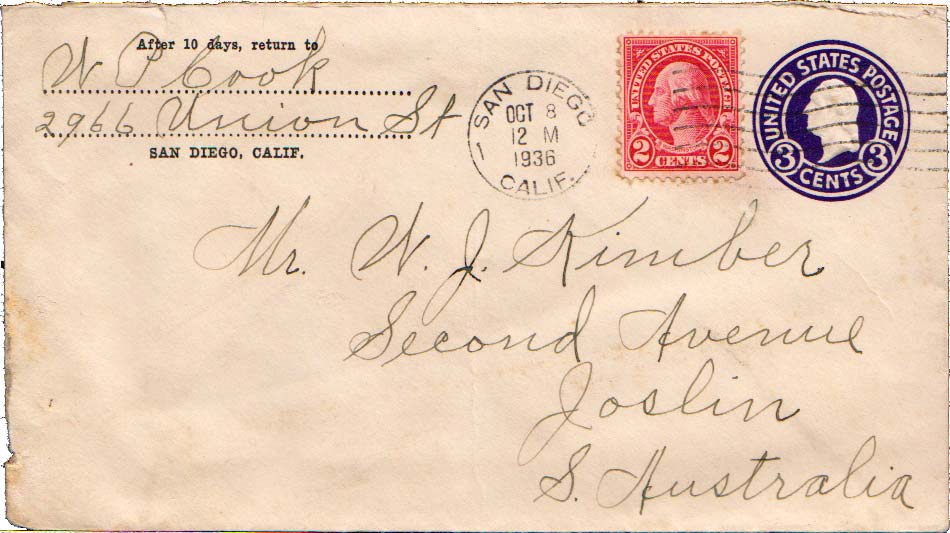 After 10 days, return to
W P Cook
2966 Union St
SAN DIEGO, CALIF.
SAN DIEGO
OCT 8
12 M
1936
CALIF.
1
UNITED STATES POSTAGE
2 CENTS 2
UNITED STATES POSTAGE
3 CENTS 3
Mr. W. J. Kimber
Second Avenue
Joslin
S. Australia